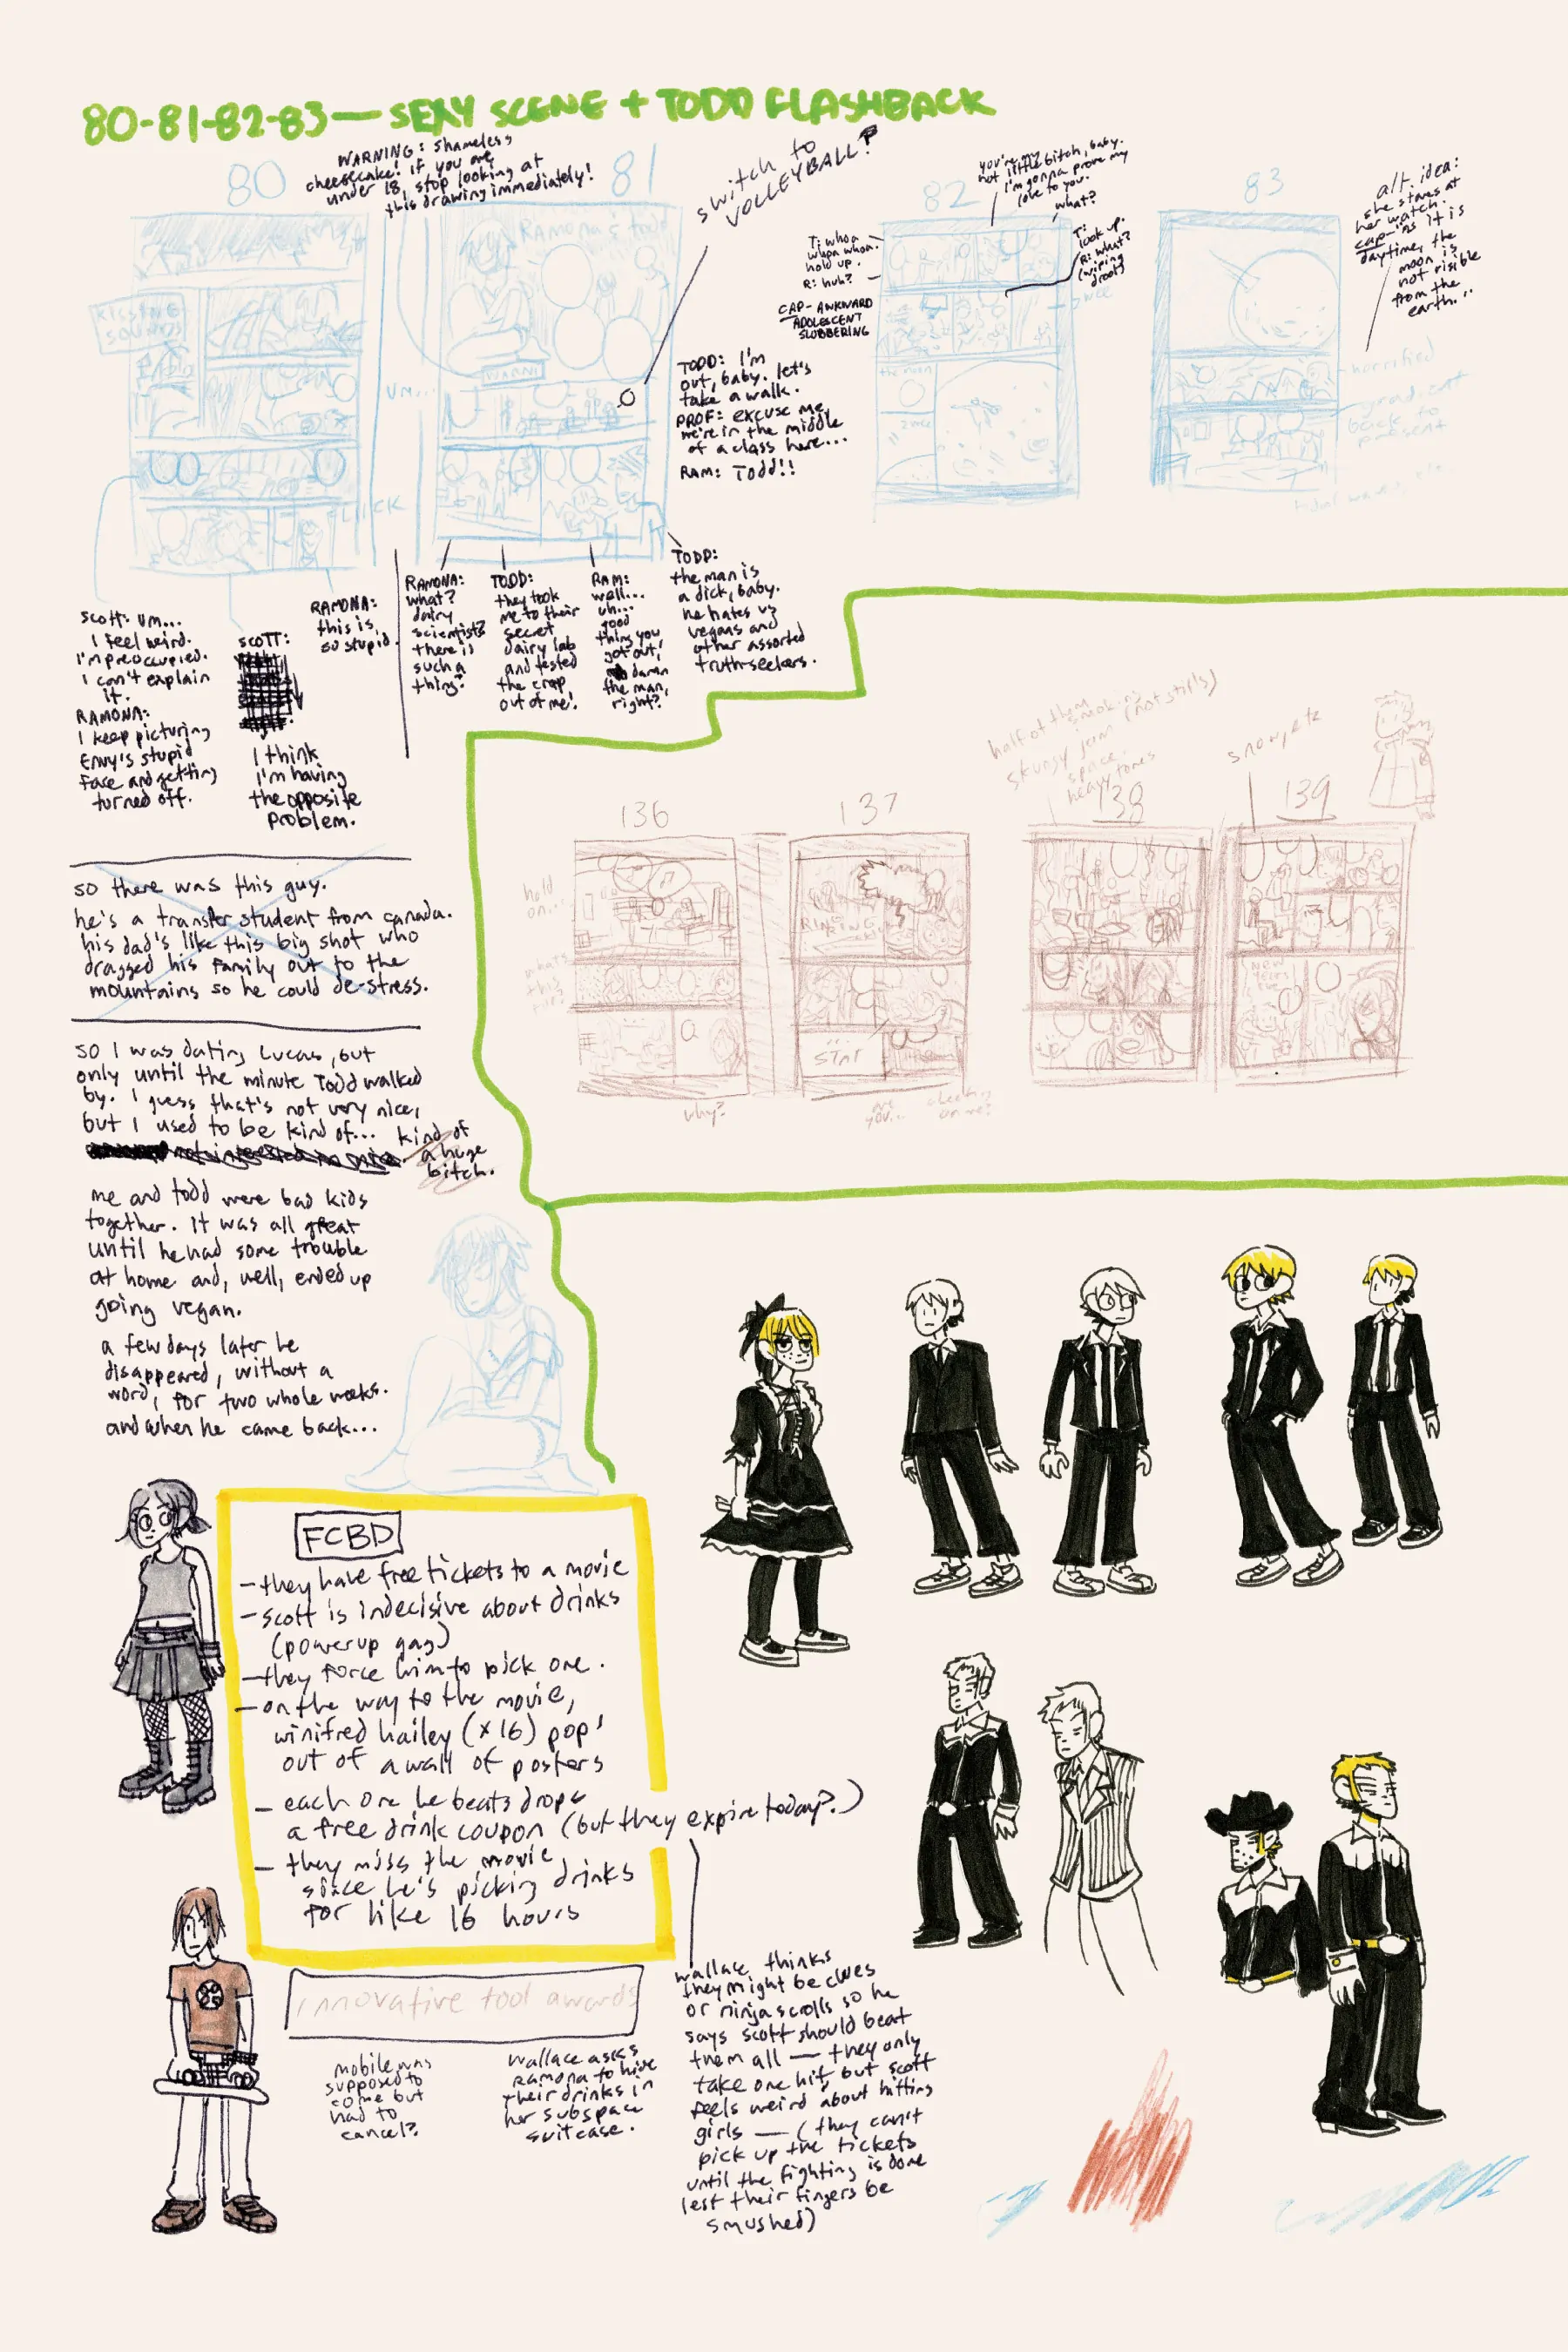 80-81-82-83 — SEXY SCENE + TODD FLASHBACK
80
WARNING: shameless
cheesecake! if you are
under 18, stop looking at
this drawing immediately!
81
KISSING
SOUNDS
Ramona & Todd
UM...
CLICK
switch to
VOLLEYBALL?
TODD: I'm
out, baby. let's
take a walk.
PROF: excuse me,
we're in the middle
of a class here...
RAM: Todd!!
82
you're my
hot little bitch, baby.
I'm gonna prove my
love to you.
what?
T: whoa
whoa whoa.
hold up.
R: huh?
CAP- AWKWARD
ADOLESCENT
SLOBBERING
T:
look up.
R: what?
(wiping
drool)
the moon
83
alt. idea:
she stares at
her watch.
cap- "As it is
daytime, the
moon is
not visible
from the
earth..."
horrified
gradient
back to
present
Scott: Um...
I feel weird.
I'm preoccupied.
I can't explain
it.
RAMONA:
I keep picturing
Envy's stupid
face and getting
turned off.
SCOTT:
I think
I'm having
the opposite
problem.
RAMONA:
this is
so stupid.
RAMONA:
what?
dairy
scientists?
there is
such a
thing?
TODD:
they took
me to their
secret
dairy lab
and tested
the crap
out of me!
RAM:
well...
uh...
good
thing you
got out,
damn
the man,
right?
TODD:
the man is
a dick, baby.
he hates us
vegans and
other assorted
truth-seekers.
so there was this guy.
he's a transfer student from canada.
his dad's like this big shot who
dragged his family out to the
mountains so he could de-stress.
so I was dating Lucas, but
only until the minute Todd walked
by. I guess that's not very nice,
but I used to be kind of... kind of
a huge
bitch.
me and todd were bad kids
together. it was all great
until he had some trouble
at home and, well, ended up
going vegan.
a few days later he
disappeared, without a
word, for two whole weeks.
and when he came back...
136
137
half of them
smoking
(not stills)
space
heavy tones
138
snowjetz
139
hold
on...
what's
this
START
why?
are
you...
checking
on me?
FCBD
- they have free tickets to a movie
- scott is indecisive about drinks
(powerup gag)
- they force him to pick one.
- on the way to the movie,
winifred hailey (x16) pops
out of a wall of posters
- each one he beats drops
a free drink coupon (but they expire today?)
- they miss the movie
since he's picking drinks
for like 16 hours
innovative tool awards
mobile was
supposed to
come but
had to
cancel?
wallace asks
Ramona to hide
their drinks in
her subspace
suitcase.
wallace thinks
they might be clues
or ninja scrolls so he
says scott should beat
them all — they only
take one hit, but scott
feels weird about hitting
girls — (they can't
pick up the tickets
until the fighting is done
lest their fingers be
smushed)